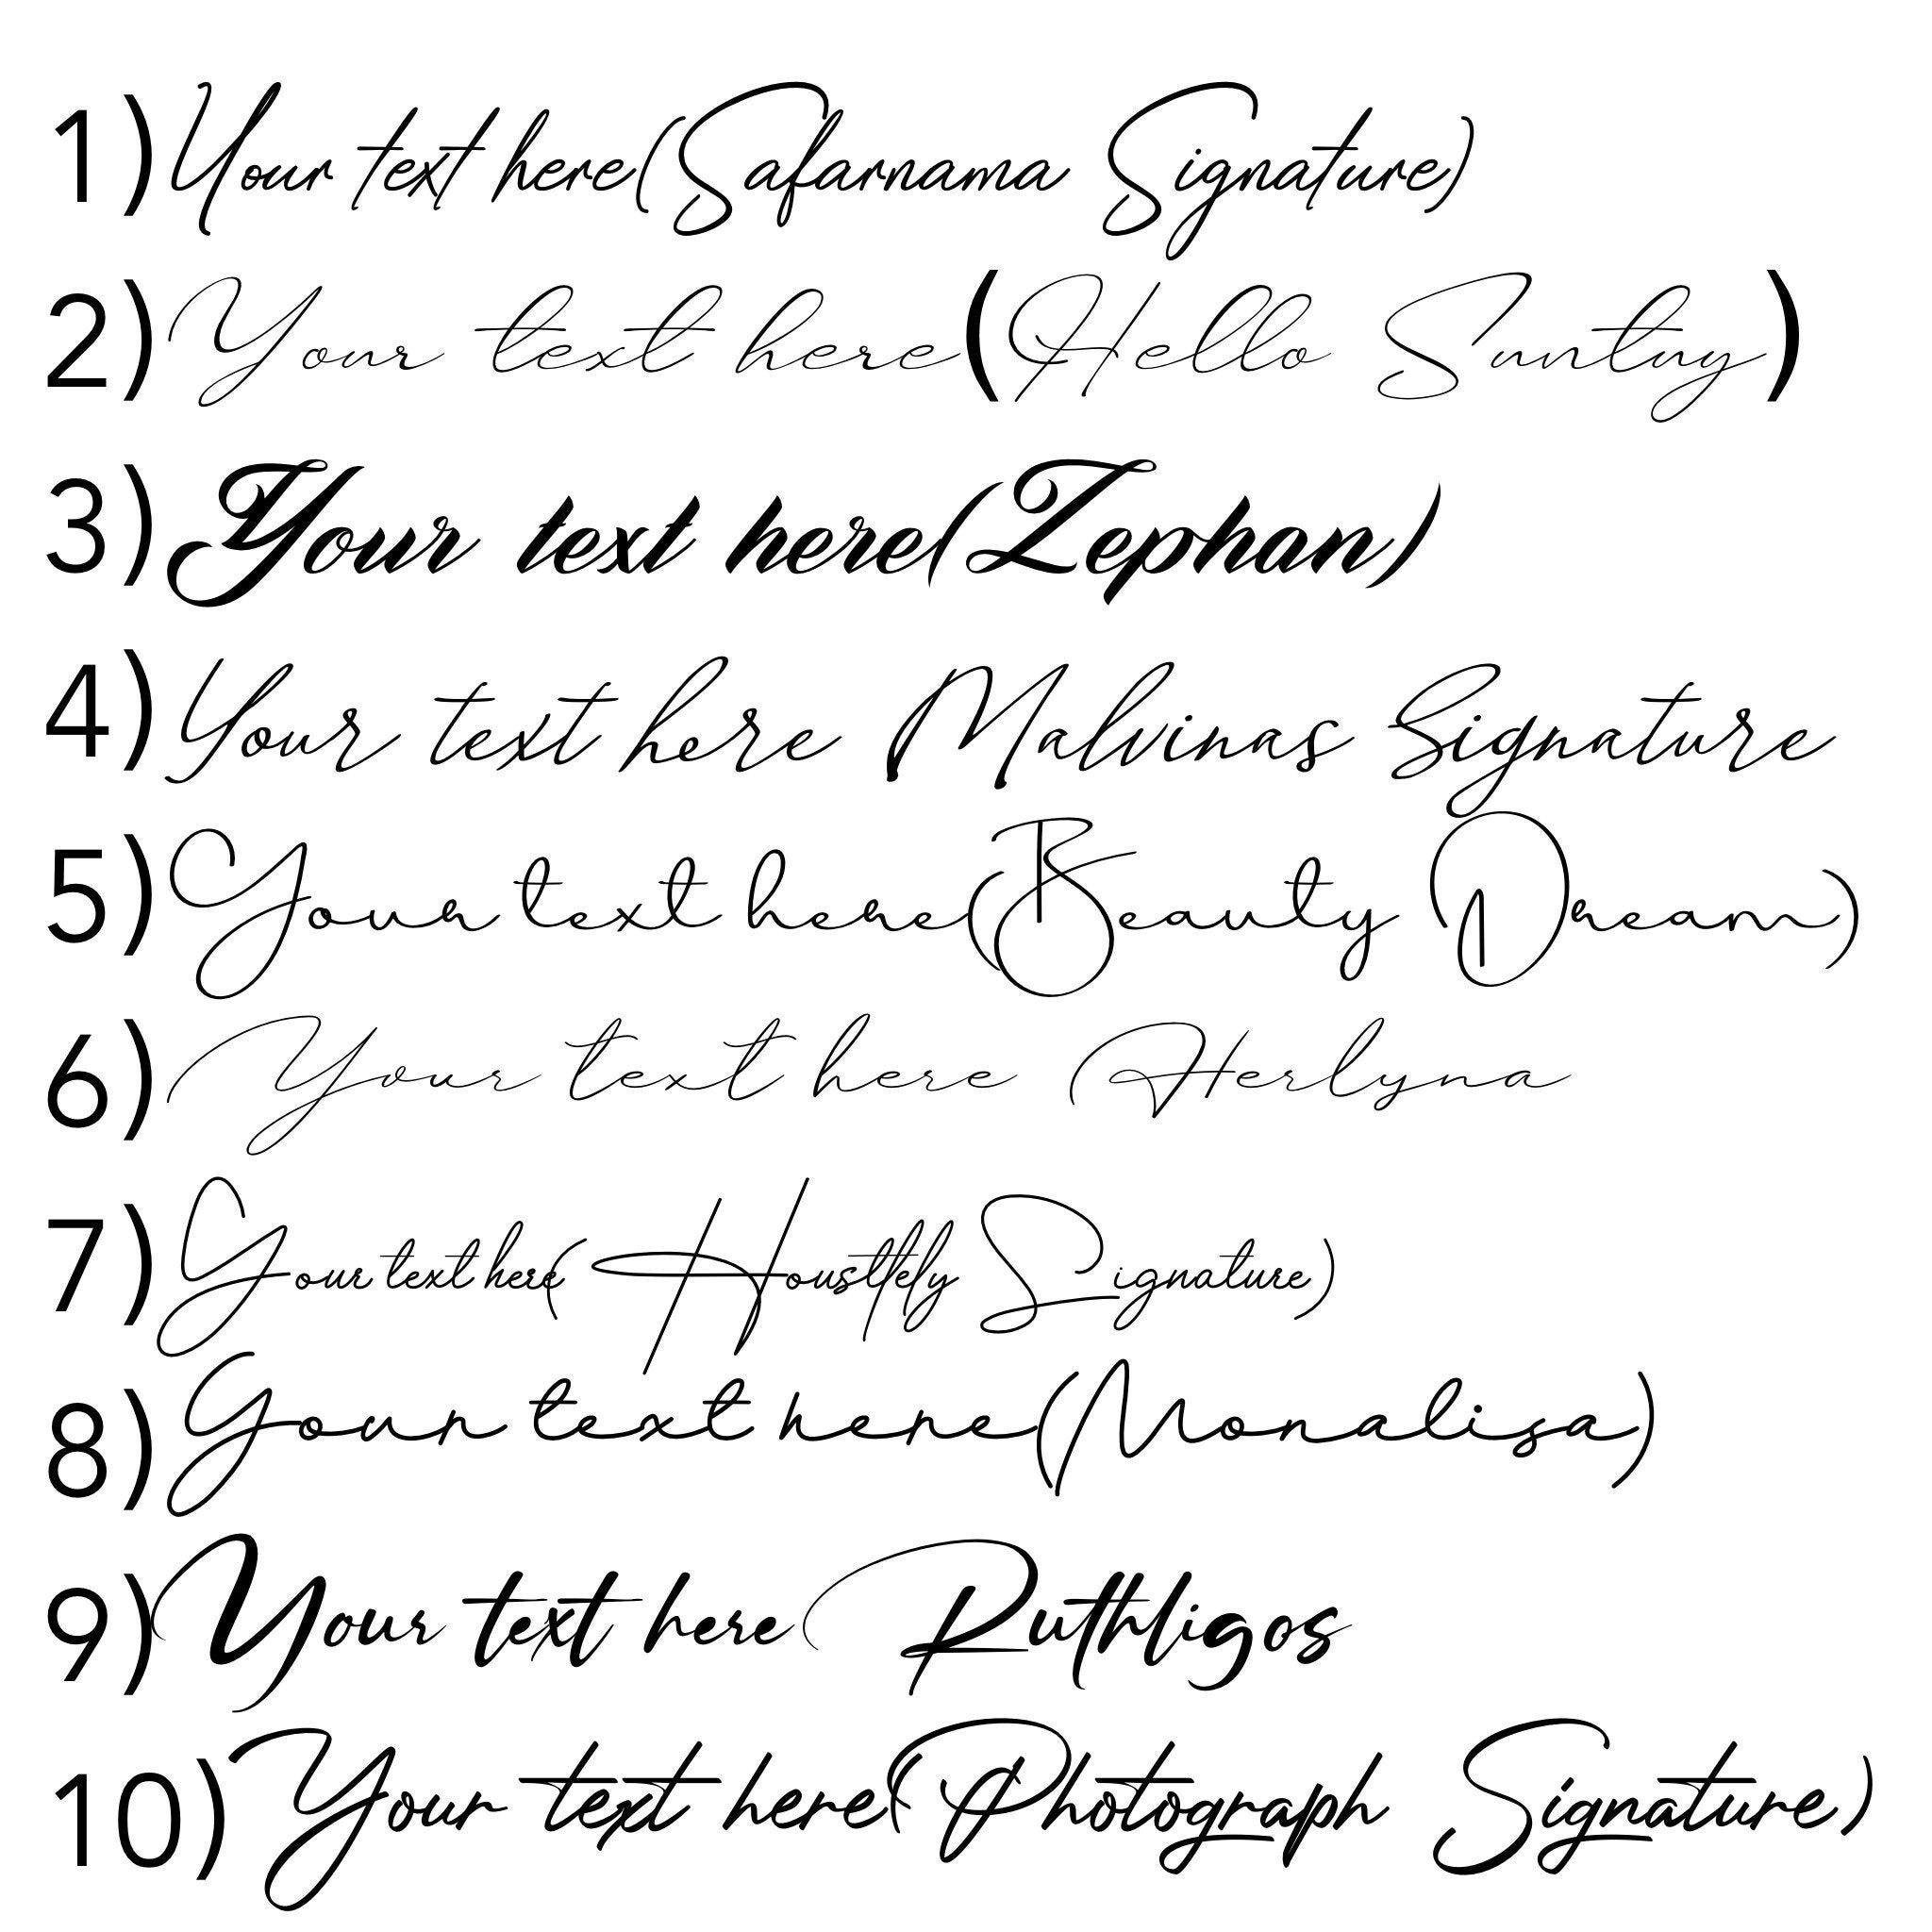 1) Your text here(Safarnama Signature)
2) Your text here(Hello Suntuy)
3) Your text here(Zephan)
4) Your text here Malvinas Signature
5) Your text here(Beauty Dream)
6) Your text here Herlyna
7) Your text here(Housttely Signature)
8) Your text here(Monalisa)
9) Your text here Ruthligos
10) Your text here(Photograph Signature)